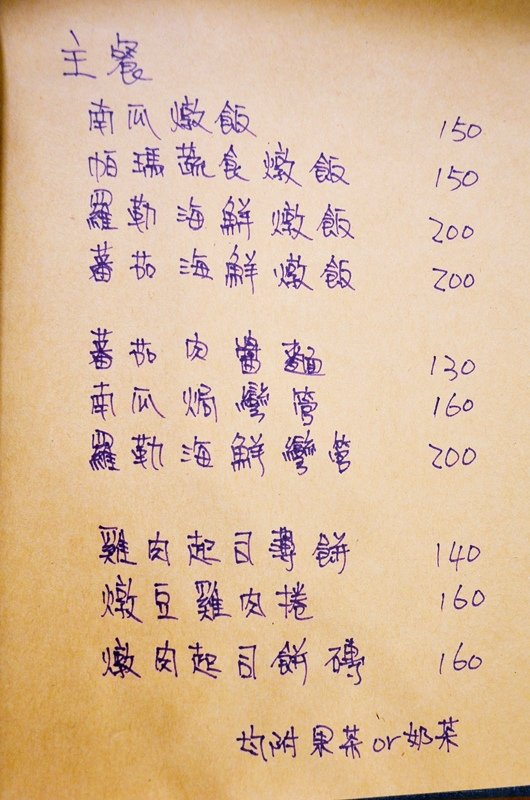 主餐
南瓜燉飯 150
帕瑪蔬食燉飯 150
羅勒海鮮燉飯 200
蕃茄海鮮燉飯 200
蕃茄肉醬麵 130
南瓜焗彎管 160
羅勒海鮮彎管 200
雞肉起司薄餅 140
燉豆雞肉捲 160
燉肉起司餅磚 160
均附果茶or奶茶